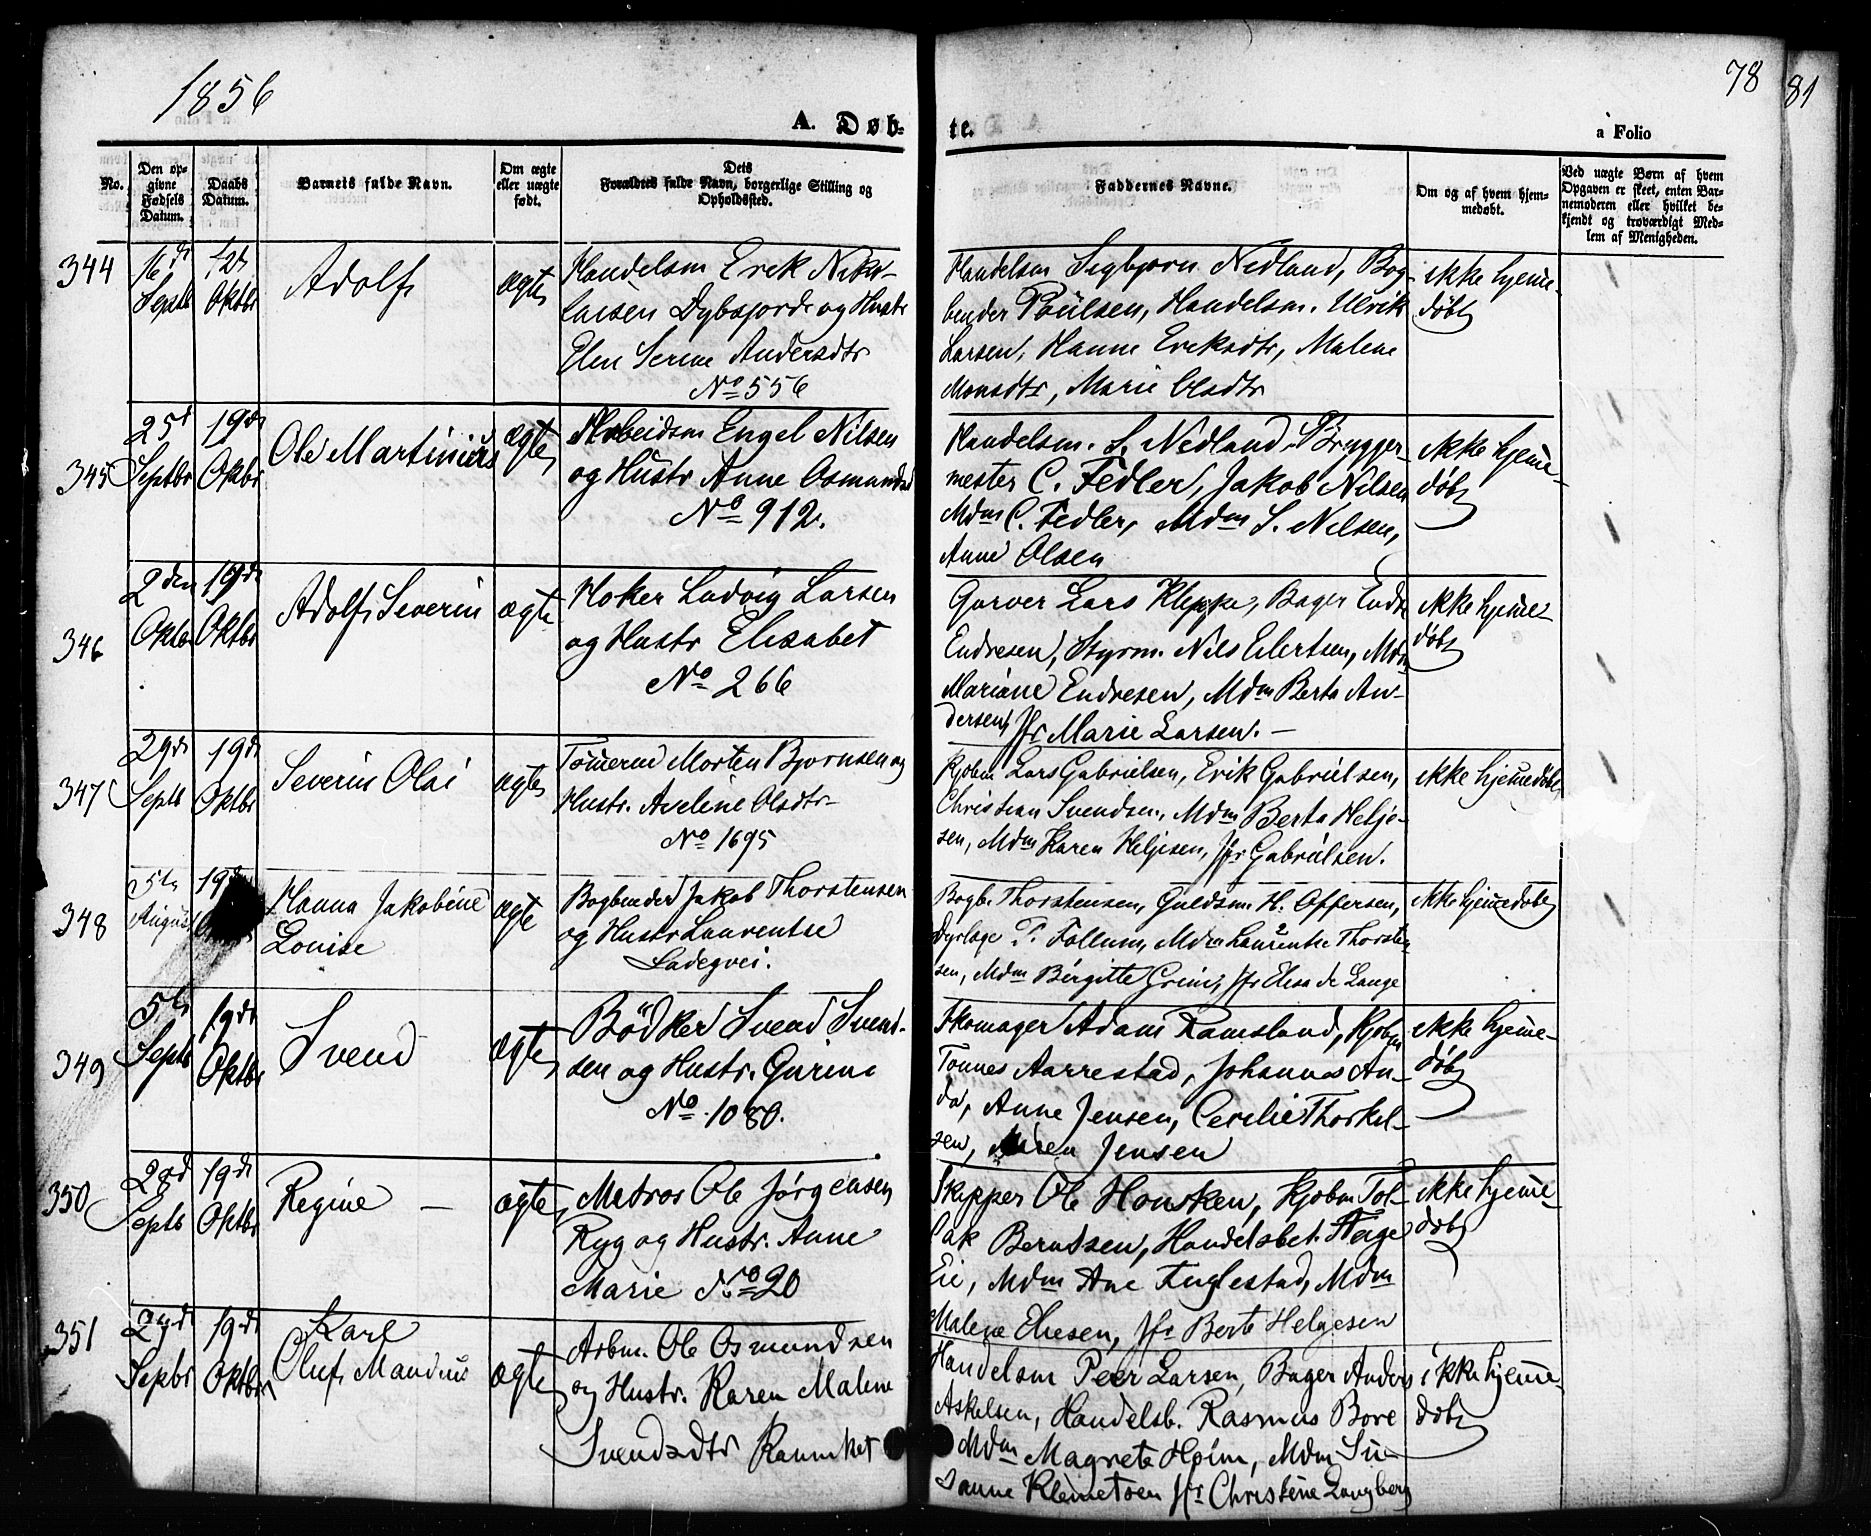 1856
78
81
A. Døb-
te.
a Folio
No.
Den op-
givne
Fødsels
Datum.
Daabs
Datum.
Barnets fulde Navn.
Om ægte
eller uægte
født.
Dets
Forældres fulde Navn, borgerlige Stilling og
Opholdssted.
Faddernes Navne.
Om og af hvem hjem-
medøbt.
Ved uægte Børn af hvem
Opgaven er skeet, enten Bar-
nemoderen eller hvilket be-
kjendt og troværdigt Med-
lem af Menigheden.
344
16de Septb
12te Oktbr
Adolf
ægte
Handelsm Erik Niku-
laisen Dybsfjord og Hustr
Elen Serine Andersdtr
No 556
Handelsm Sigbjørn Nedland, Bog-
binder Poülsen, Handelsm. Ulrik
Larsen, Hanne Eriksdtr, Malene
Monsdtr, Marie Olsdtr
ikke hjeme-
døbt
345
25d Septbr
19de Oktbr
Ole Martinius
ægte
Arbeidsm Engel Nilsen
og Hustr Anne Osmundsd
No 912.
Handelsm. S. Nedland, Brygger-
mester C. Fedler, Jakob Nilsen
Mdm C. Fedler, Mdm S. Nilsen,
Anne Olsen
ikke hjeme-
døbt
346
2den Oktb
19de Oktbr
Adolf Severin
ægte
Høker Ludvig Larsen
og Hustr Elisabet
No 266
Garver Lars Kleppe, Bager Endre
Endresen, Styrm. Nils Eilertsen, Mdm
Mariane Endresen, Mdm Berta An-
dersen, Jfr Marie Larsen. —
ikke hjeme-
døbt
347
29de Septb
19de Oktbr
Severin Olai
ægte
Tømerm Morten Bjørnsen og
Hustr. Aveline Olsdtr
No 1695
Kjøbm Lars Gabrielsen, Erik Gabrielsen,
Christian Svendsen, Mdm Berta Helje-
sen, Mdm Karen Heljesen, Jfr Gabrielsen.
ikke hjemedøbt
348
5te August
19de
Hanna Jakobine
Lovise
ægte
Bogbinder Jakob Thorstensen
og Hustr Laurentse
Ladegvei.
Bogb. Thorstensen, Guldsm H. Offersen,
Dyrlæge T. Follum, Mdm Laurentse Thorsten-
sen, Mdm Birgitte Grini, Jfr Elisa de Lange
ikke hjemedøbt
349
5te Septb
19de Oktbr
Svend
ægte
Bödker Svend Svend-
sen og Hustr. Gurine
No. 1080.
Skomager Adam Ramsland, Kjøbm
Tønnes Aarrestad, Johannes An-
da, Anne Jensen, Cecilie Thorkel-
sen, Maren Jensen
ikke hjeme-
døbt
350
28d Septb
19de Oktbr
Regine —
ægte
Matros Ole Jörgensen
Ryg og Hustr. Anne
Marie No 20
Skipper Ole Honsken, Kjøbm Tol-
lak Berntsen, Handelsbet. Tage
Eie, Mdm Ane Fuglestad, Mdm
Malene Eliesen, Jfr Berte Helgesen
ikke hjeme-
døbt
351
27de Septbr
19de Oktbr
Karl
Oluf Mandius
ægte
Arbm. Ole Osmundsen
og Hustr. Karen Malene
Svendsdtr
Handelsm Peer Larsen, Bager Anders
Askelsen, Handelsb. Rasmus Bore
Mdm Magrete Holm, Mdm Su-
sanne Klemetsen Jfr Christine Langberg
ikke hjeme-
døbt